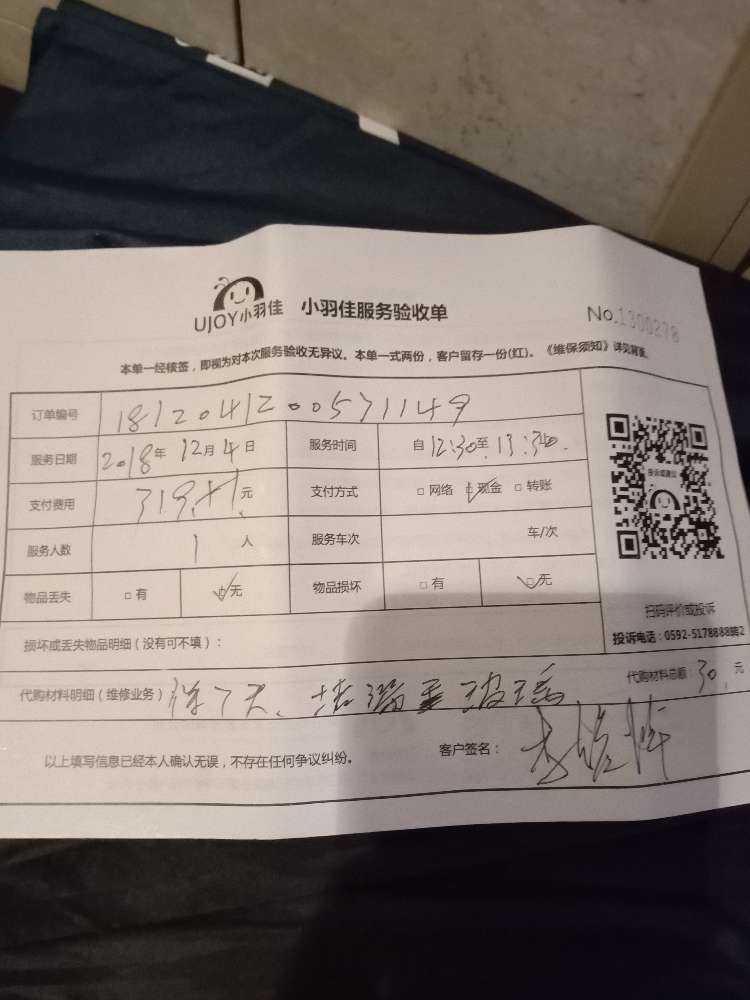 UJOY小羽佳 小羽佳服务验收单 No.1300278
本单一经核签，即视为对本次服务验收无异议。本单一式两份，客户留存一份(红)。《维保须知》详见背面。
订单编号 1812041200571149
服务日期 2018年12月4日 服务时间 自12:30至13:30.
支付费用 元 支付方式 □网络 □现金 □转账
投诉或建议
服务人数 1人 服务车次 车/次
物品丢失 □有 □无 物品损坏 □有 □无
扫码评价或投诉
投诉电话：0592-5178888转2
损坏或丢失物品明细（没有可不填）：
代购材料明细（维修业务） 玻璃 代购材料总额：30.元
以上填写信息已经本人确认无误，不存在任何争议纠纷。 客户签名：